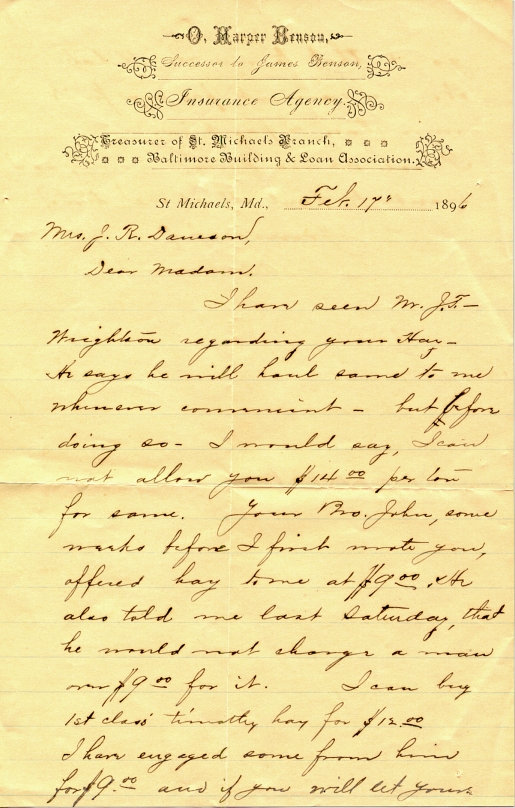 O. Harper Benson,
Successor to James Benson,
Insurance Agency.
Treasurer of St. Michaels Branch,
Baltimore Building & Loan Association.
St Michaels, Md., Feb. 17" 1896
Mrs. J. R. Dawson,
Dear Madam.
I have seen Mr. J. T.
Wrightson regarding your Hay -
He says he will haul same to me
whenever convenient - but before
doing so - I would say, I can
not allow you $14 00 per ton
for same. Your Bro. John, some
weeks before I first wrote you,
offered hay to me at $9 00. He
also told me last Saturday, that
he would not charge a man
over $9 00 for it. I can buy
1st class timothy hay for $12.00
I have engaged some from him
for $9.00 and if you will let yours